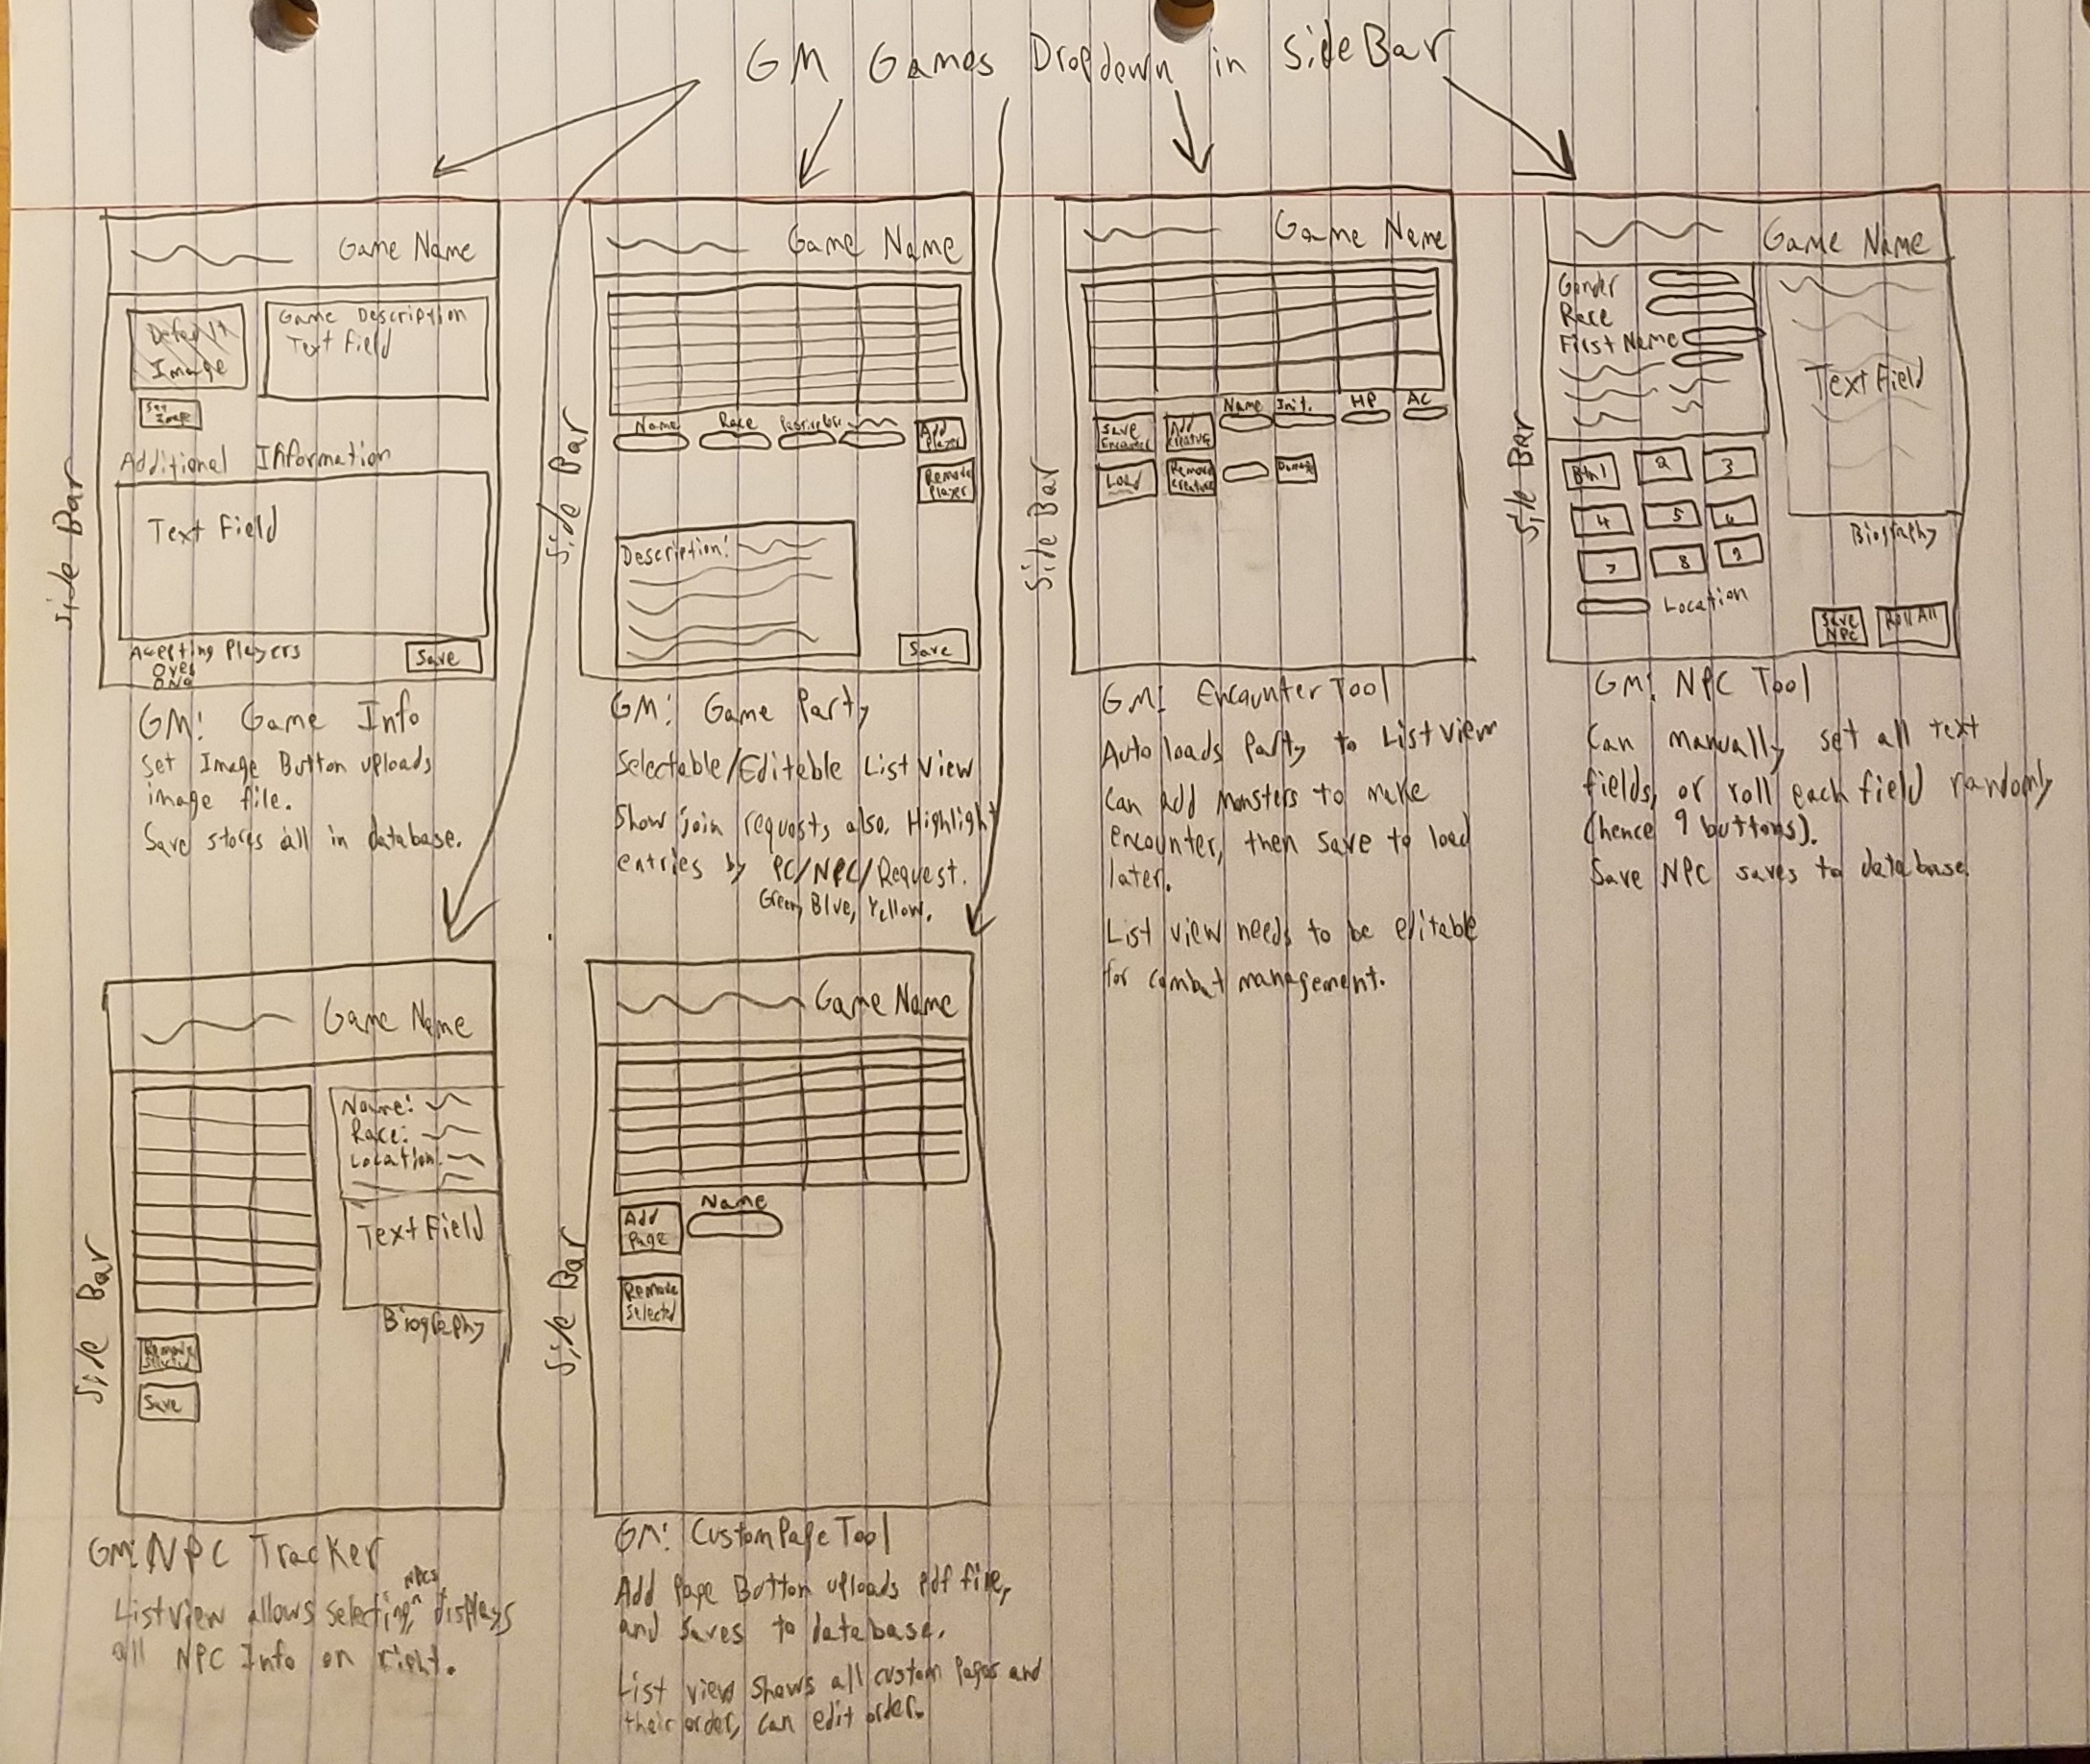 GM Games Dropdown in SideBar
Side Bar
Game Name
Default
Image
Game Description
Text Field
Set
Image
Additional Information
Text Field
Accepting Players
Yes
No
Save
GM: Game Info
Set Image Button uploads
image file.
Save stores all in database.
Side Bar
Game Name
Name
Race
Add
Player
Remove
Player
Description:
Save
GM: Game Party
Selectable/Editable List View
Show join requests also. Highlight
entries by PC/NPC/Request.
Green, Blue, Yellow.
Side Bar
Game Name
Save
Encounter
Add
Creature
Name
Init.
HP
AC
Load
Remove
Creature
Damage
GM: Encounter Tool
Auto loads Party to List view
Can add monsters to make
encounter, then save to load
later.
List view needs to be editable
for combat management.
Side Bar
Game Name
Gender
Race
First Name
Text Field
Btn1
2
3
4
5
6
7
8
9
Biography
Location
Save
NPC
Roll All
GM: NPC Tool
Can manually set all text
fields, or roll each field randomly
(hence 9 buttons).
Save NPC saves to database
Side Bar
Game Name
Name:
Race:
Location:
Text Field
Biography
Remove
Selected
Save
GM: NPC Tracker
List view allows selecting NPCs, displays
all NPC Info on right.
Side Bar
Game Name
Add
Page
Name
Remove
Selected
GM: Custom Page Tool
Add Page Button uploads pdf file,
and saves to database.
List view shows all custom pages and
their order, can edit order.